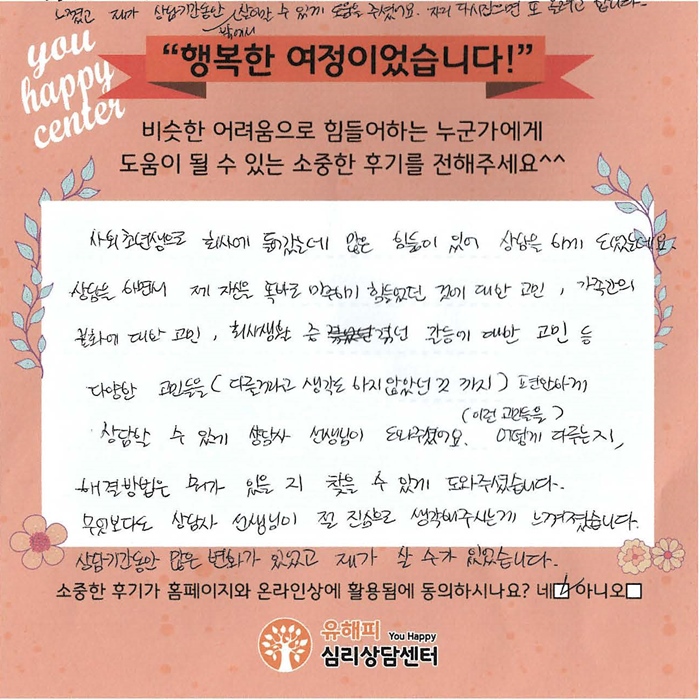 느꼈고 제가 상담기간동안 밖에서 살아갈 수 있게 도움을 주셨어요. 다시
you
happy
center
“행복한 여정이었습니다!”
비슷한 어려움으로 힘들어하는 누군가에게
도움이 될 수 있는 소중한 후기를 전해주세요^^
사회초년생으로 회사에 들어갔는데 많은 힘듦이 있어 상담을 하게 되었는데요.
상담을 하면서 제 자신을 똑바로 마주하기 힘들었던 것에 대한 고민, 가족간의
불화에 대한 고민, 회사생활 중 겪었던 갈등에 대한 고민 등
다양한 고민들을 (다룰거라고 생각도 하지 않았던 것 까지) 편안하게
상담할 수 있게 상담사 선생님이 도와주셨어요. (이런 고민들을) 어떻게 다루는지,
해결방법은 뭐가 있을 지 찾을 수 있게 도와주셨습니다.
무엇보다도 상담사 선생님이 절 진심으로 생각해주시는게 느껴졌습니다.
상담기간동안 많은 변화가 있었고 제가 살 수가 있었습니다.
소중한 후기가 홈페이지와 온라인상에 활용됨에 동의하시나요? 네☑ 아니오□
유해피 You Happy
심리상담센터